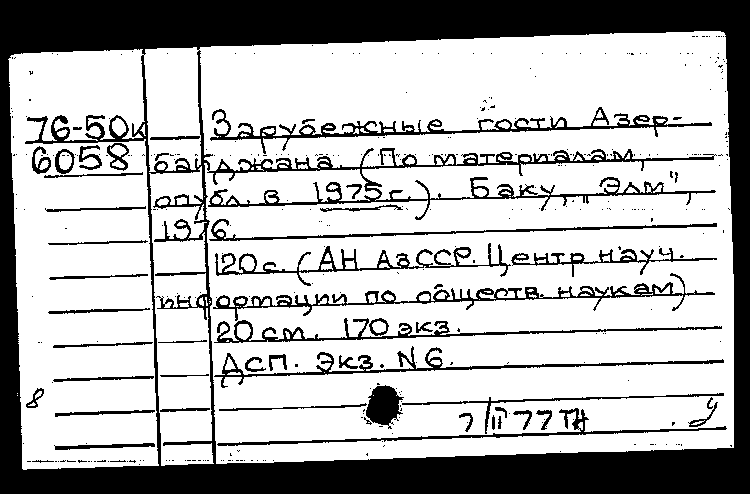 76-50к Зарубежные гости Азер-
6058 байджана. (По материалам,
опубл. в 1975 г.). Баку, „Элм",
1976.
120 с. (АН АзССР. Центр науч.
информации по обществ. наукам).
20 см. 170 экз.
ДСП. Экз. N 6.
8
7/II 77